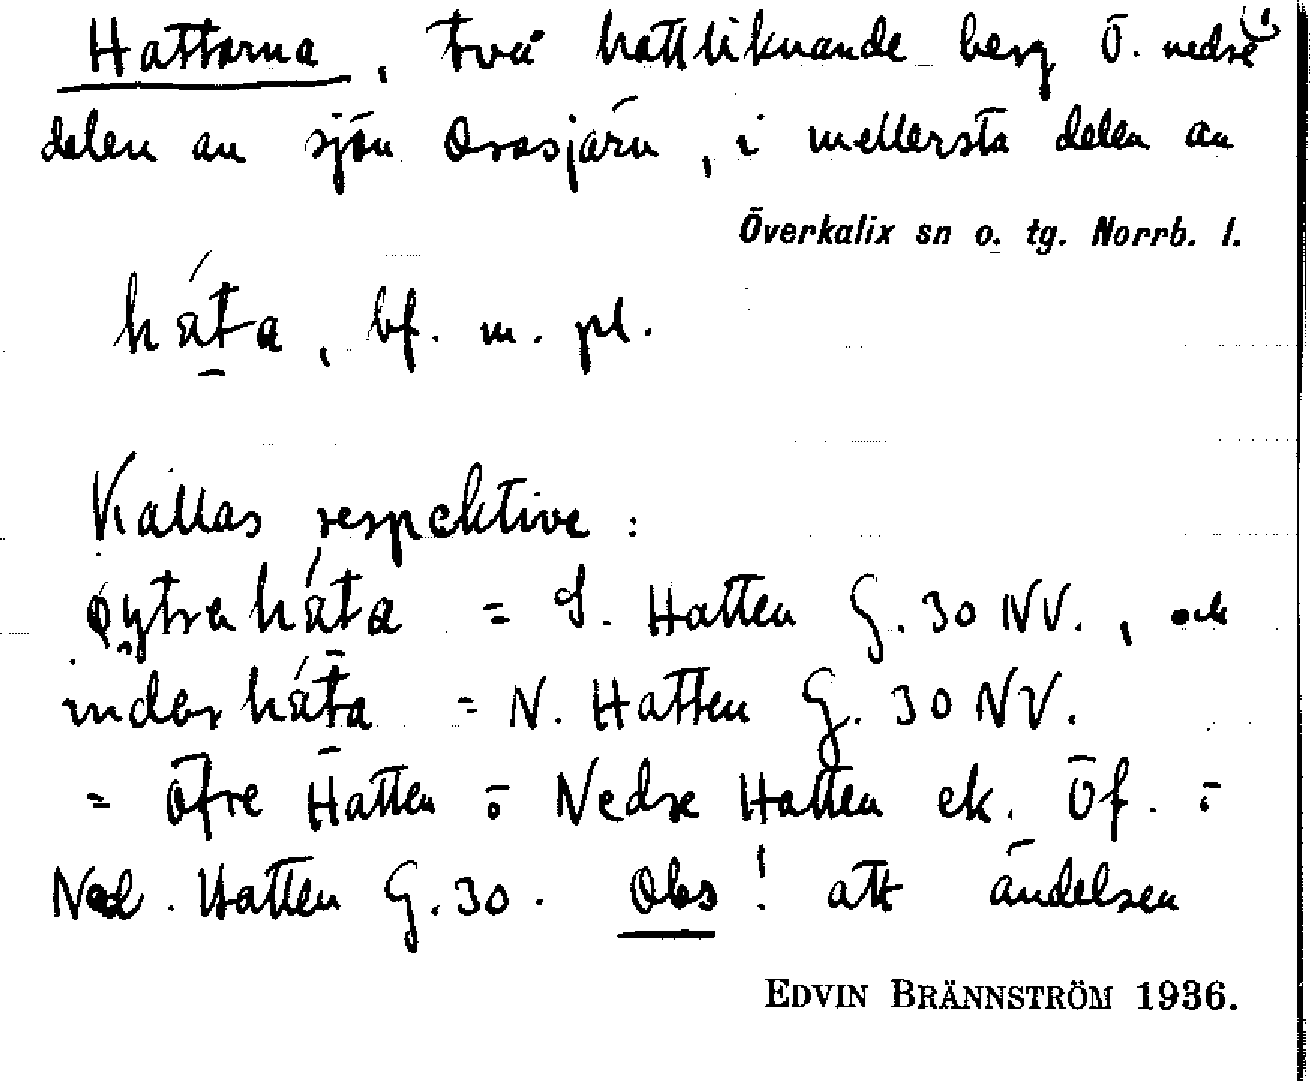 Hattarna, två hattliknande berg Ö. nedre
delen av sjön Orasjärv, i mellersta delen av
Överkalix sn o. tg. Norrb. l.
háta, bf. m. pl.
Kallas respektive:
öytraháta = S. Hatten G. 30 NV., och
inderháta = N. Hatten G. 30 NV.
= Öfre Hatten o Nedre Hatten ek. Öf. o
Ned. Hatten G. 30. Obs! att ändelsen
EDVIN BRÄNNSTRÖM 1936.